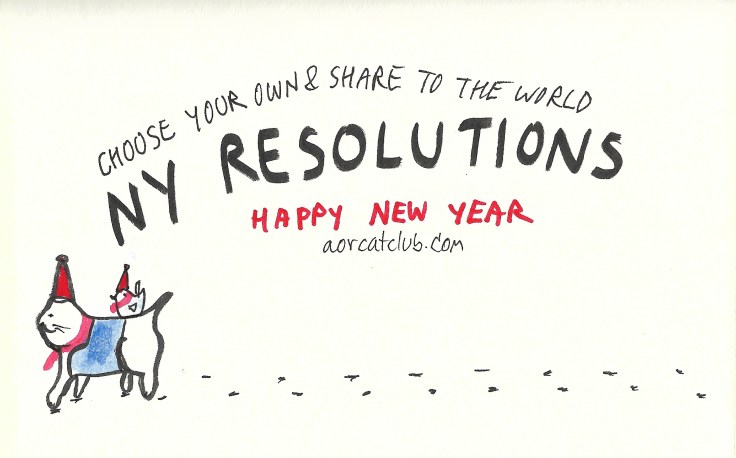 CHOOSE YOUR OWN & SHARE TO THE WORLD
NY RESOLUTIONS
HAPPY NEW YEAR
aorcatclub.com